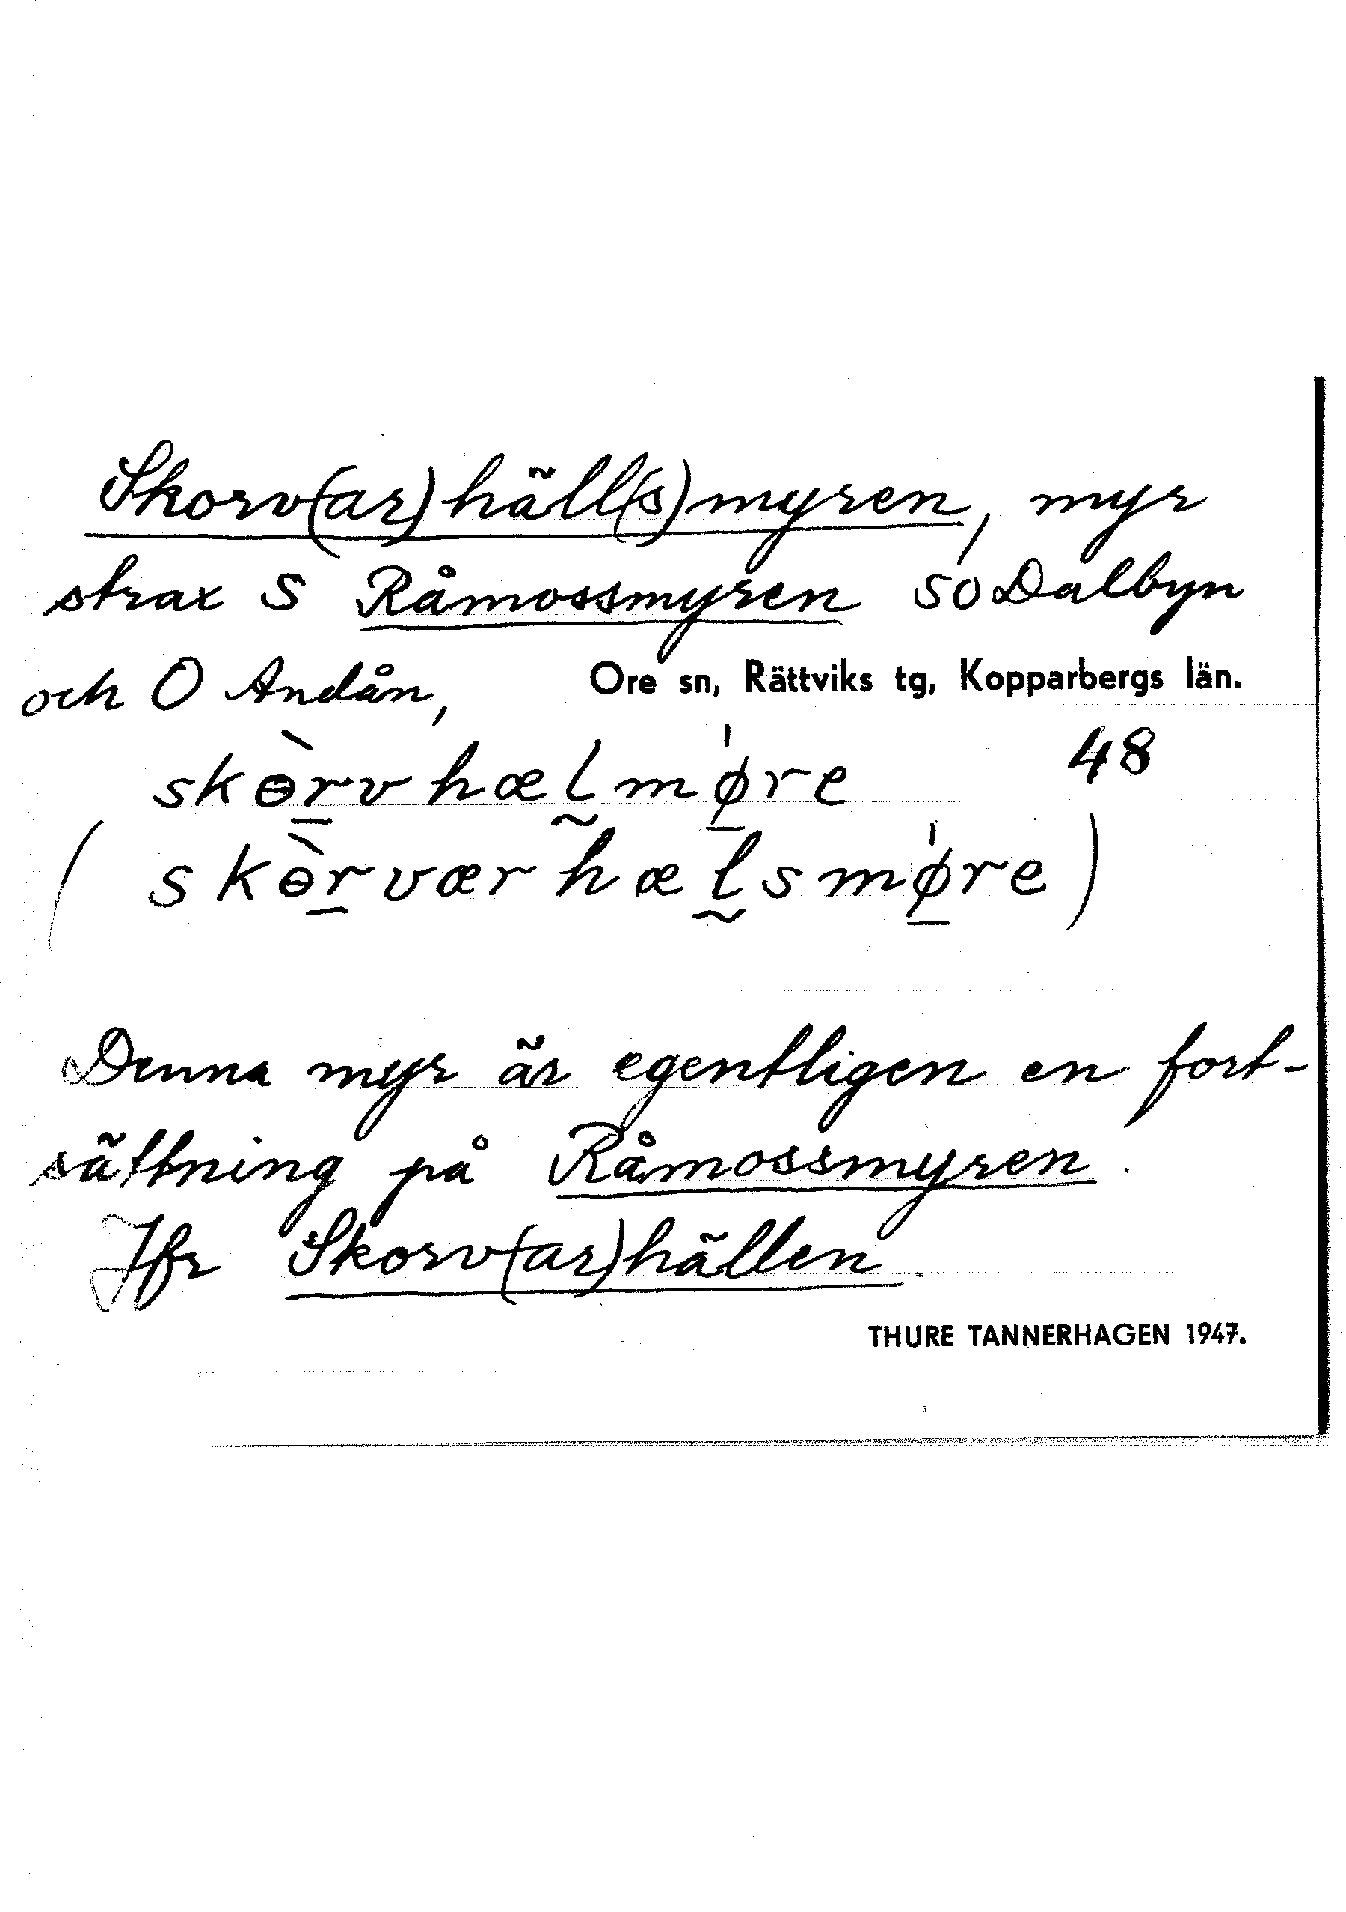 Skorv(ar)häll(s)myren, myr
strax S Råmossmyren SO Dalbyn
och O Andån, Ore sn, Rättviks tg, Kopparbergs län.
skɵ̀r̲vhælm̰ǿ̲re 48
(skɵ̀r̲værhæl̰smǿ̲re)
Denna myr är egentligen en fort-
sättning på Råmossmyren.
Jfr Skorv(ar)hällen
THURE TANNERHAGEN 1947.